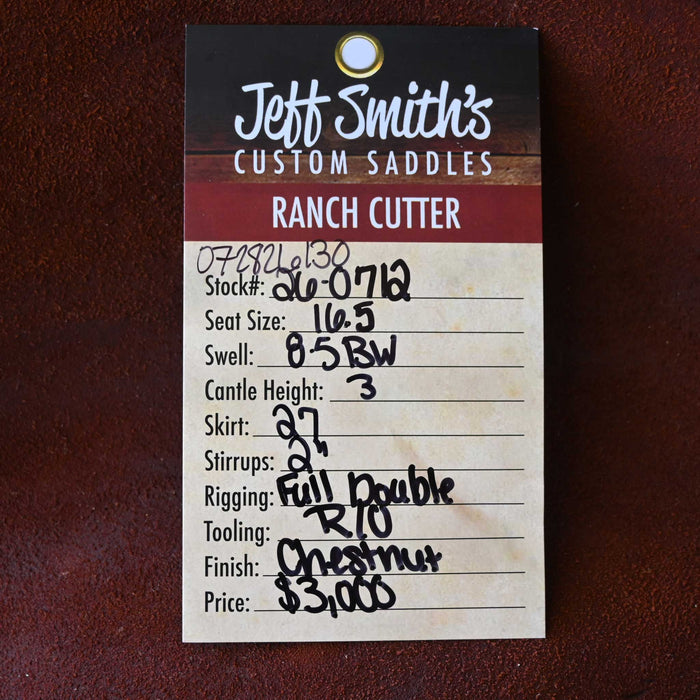 Jeff Smith's
CUSTOM SADDLES
RANCH CUTTER
Stock#: 26-0712
Seat Size: 16.5
Swell: 8.5 BW
Cantle Height: 3
Skirt: 27
Stirrups: 2"
Rigging: Full Double
Tooling: R/O
Finish: Chestnut
Price: $3,000